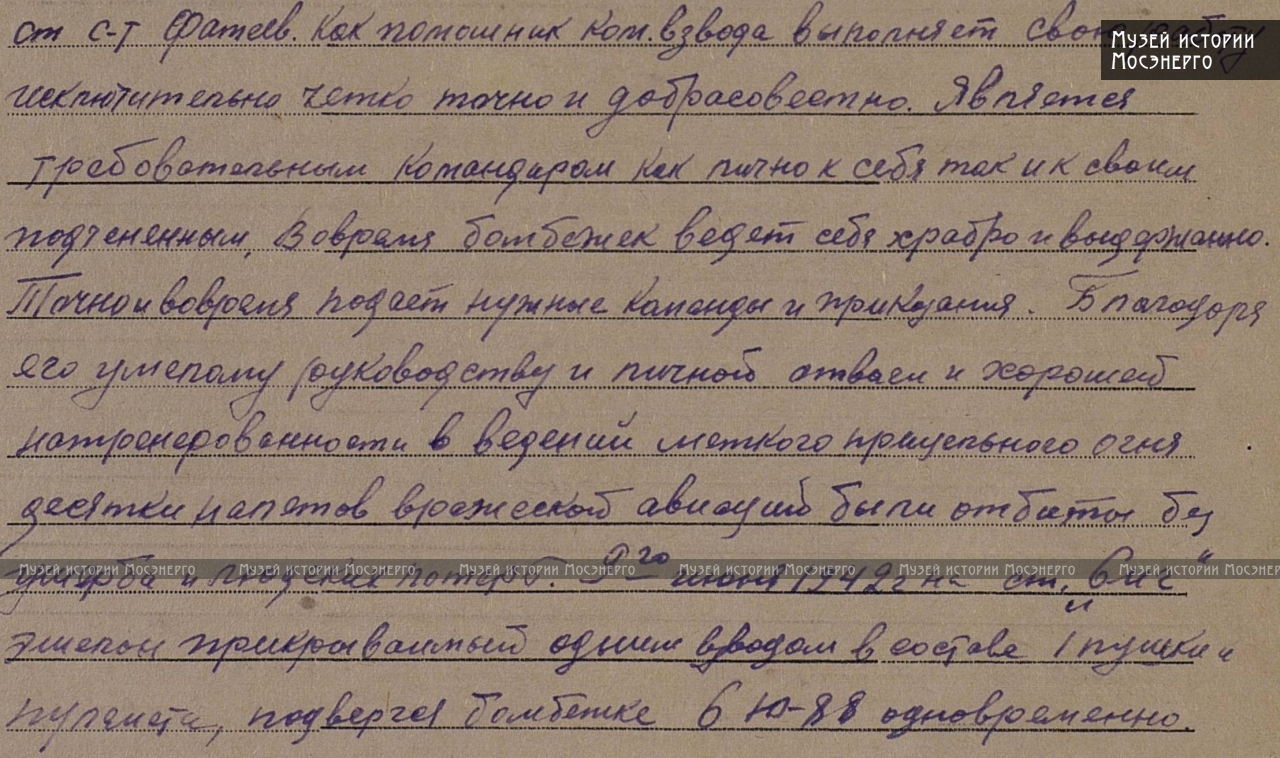 ст с-т Фатеев. Как помошник ком. взвода выполняет свою работу
Музей истории
Мосэнерго
исключительно четко точно и добрасовестно. Является
требовательным командиром как лично к себя так и к своим
подчененным, Вовремя бомбежек ведет себя храбро и выдержанно.
Точно и вовремя подает нужные команды и приказания. Благодоря
его умелому руководству и личной отваги и хорошей
натренерованности в ведений меткого прицельного огня
десятки налетов вражеской авиаций были отбиты без
ущерба и людских потерь. 9го июня 1942г на ст.
Музей истории Мосэнерго Музей истории Мосэнерго Музей истории Мосэнерго Музей истории Мосэнерго Музей истории Мосэнер
эшелон прикрываемый одним взводом в составе 1 пушки и
пулемета, подвергся бомбежке 6 Ю-88 одновременно.